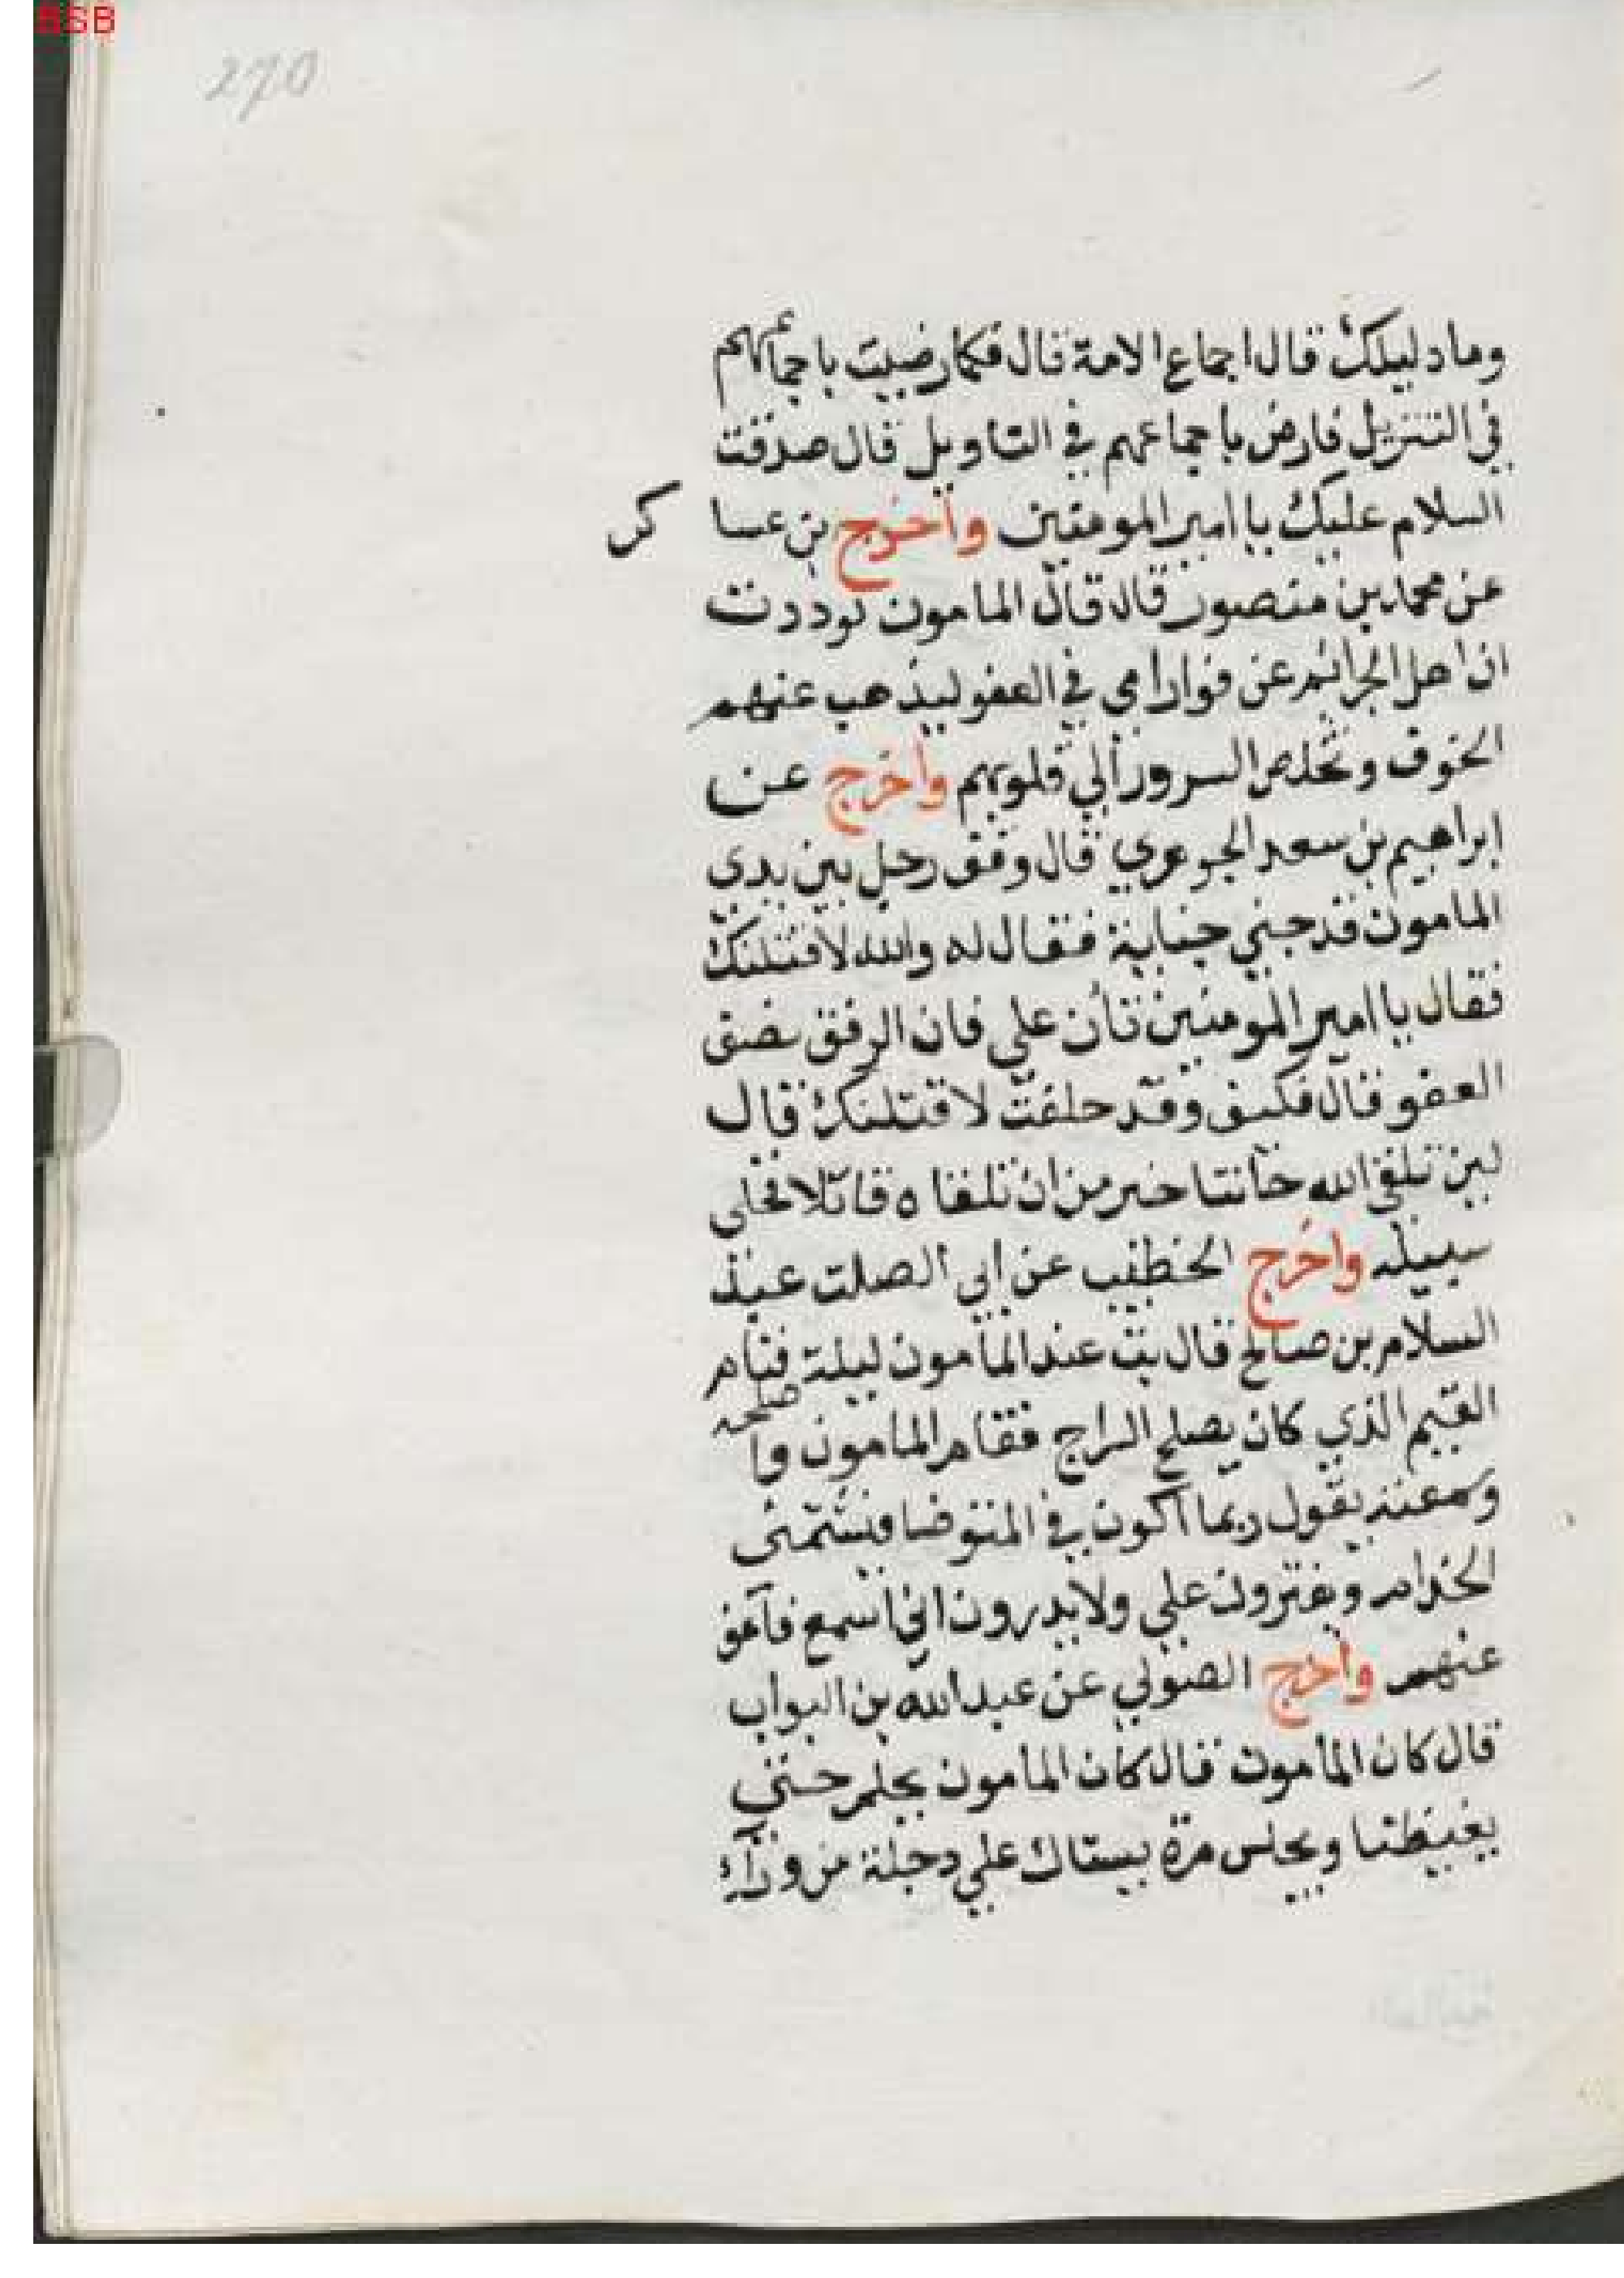 BSB
270
وما دليلك قال اجماع الامة قال فكما رضيت باجماعهم
في التنزيل فارض باجماعهم في التاويل قال صدقت
السلام عليك يا امير المومنين واخرج بن عساكر
عن محمد بن منصور قال قال المامون لوددت
ان اهل الجرائم عن فوا رامي في العفو ليذهب عنهم
الخوف وتخلص السرور الي قلوبهم واخرج عن
ابراهيم بن سعد الجوهري قال وقف رجل بين يدي
المامون قد جني جناية فقال له والله لاقتلنك
فقال يا امير المومنين تأن علي فان الرفق نصف
العفو قال فكيف وقد حلفت لاقتلنك قال
لين تلقي الله حانثا خير من ان تلقاه قاتلا فخلي
سبيله واخرج الخطيب عن ابي الصلت عبد
السلام بن صالح قال بت عند المامون ليلة فنام
القيم الذي كان يصلح السراج فقام المامون واصلحه
وسمعته يقول ربما اكون في المتوضا فيشتمني
الخدام ويفترون علي ولا يدرون اني اسمع فاعف
عنهم واخرج الصولي عن عبد الله بن البواب
قال كان المامون قال كان المامون يحلم حتي
يغيظنا ويجلس مرة يستاك علي دجلة من ورآء